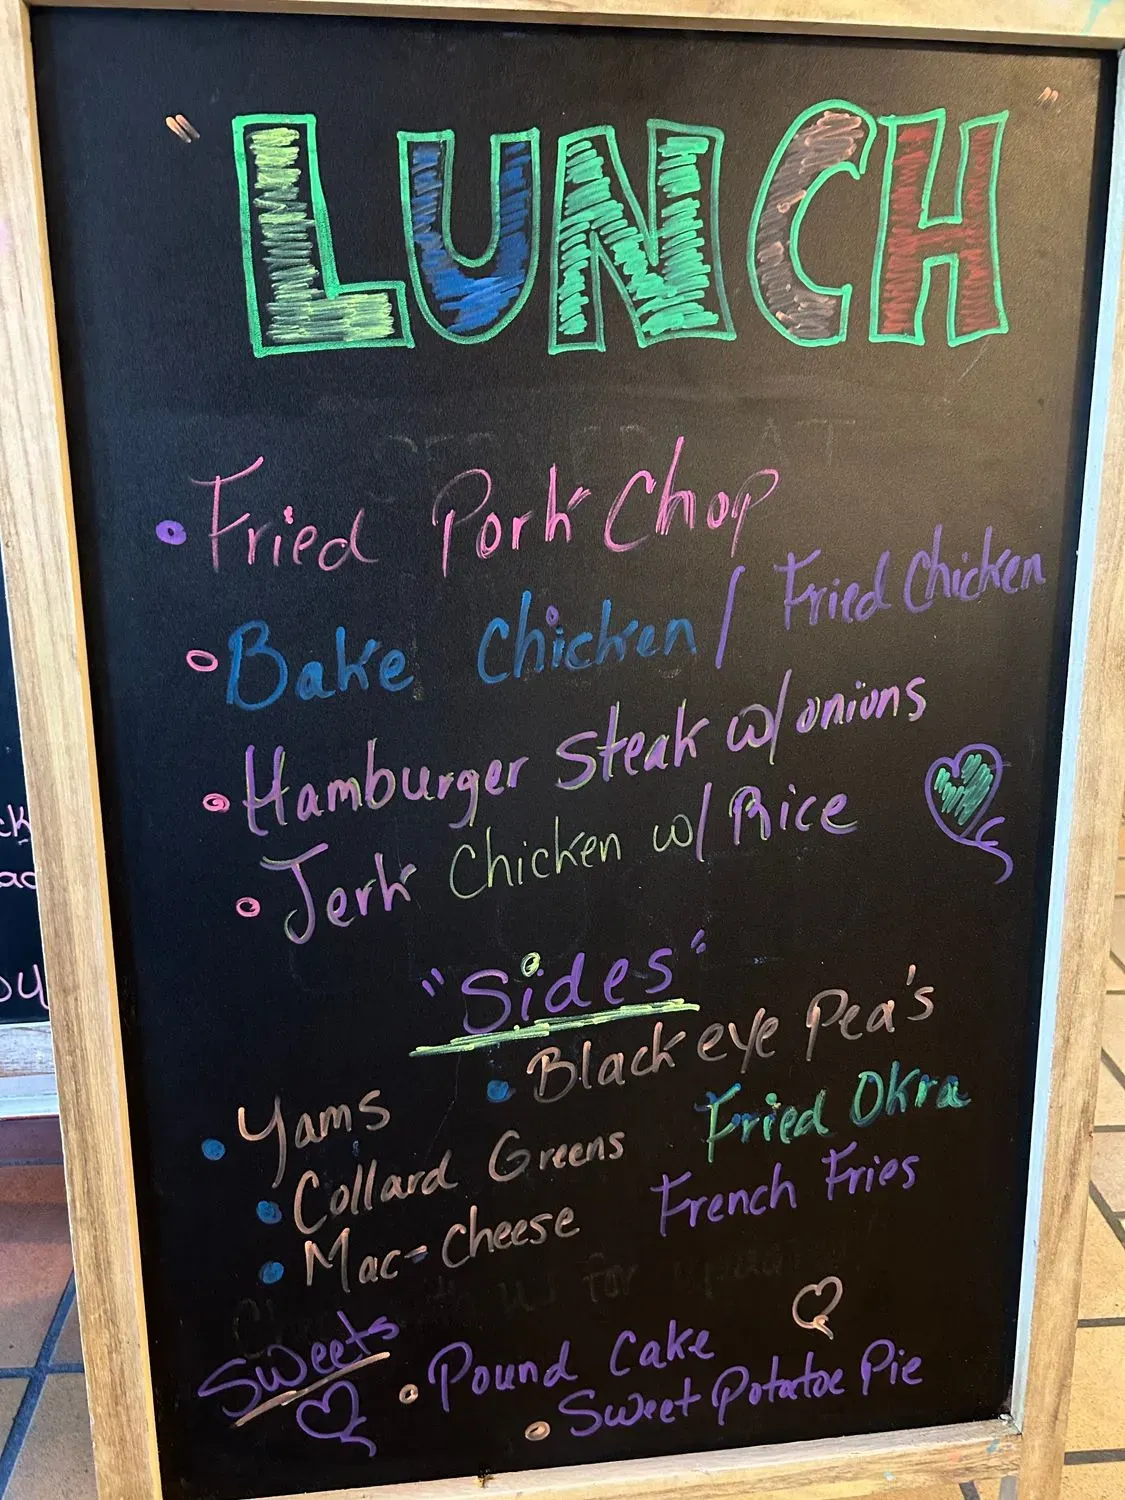 "LUNCH"
Fried Pork Chop
Bake Chicken / Fried Chicken
Hamburger Steak w/onions
Jerk Chicken w/ Rice
"Sides"
Yams
Blackeye Pea's
Collard Greens
Fried Okra
Mac-Cheese
French Fries
Sweets
Pound Cake
Sweet Potatoe Pie